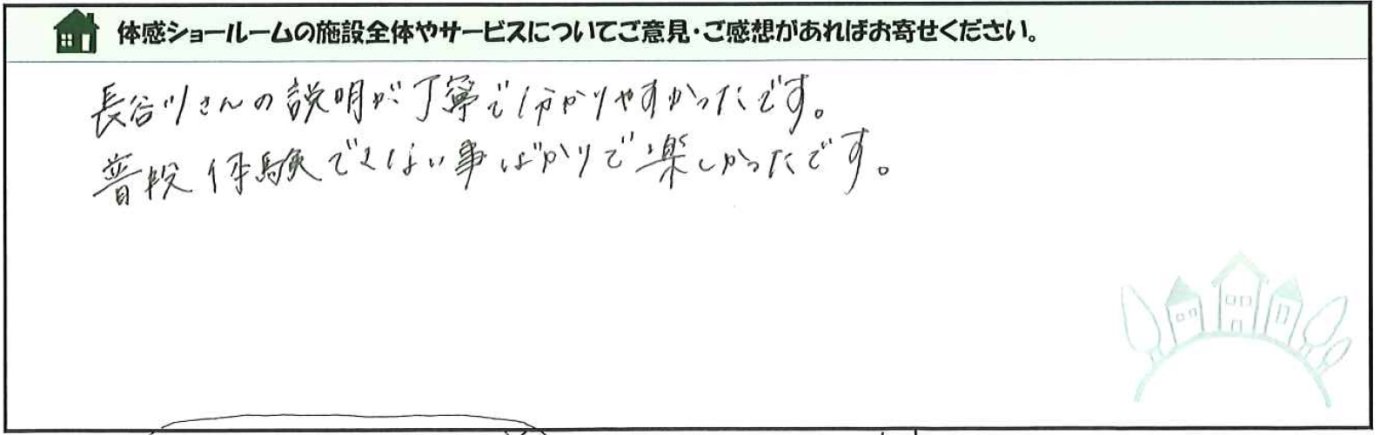 体感ショールームの施設全体やサービスについてご意見・ご感想があればお寄せください。
長谷川さんの説明が丁寧で分かりやすかったです。
普段体験できない事ばかりで楽しかったです。